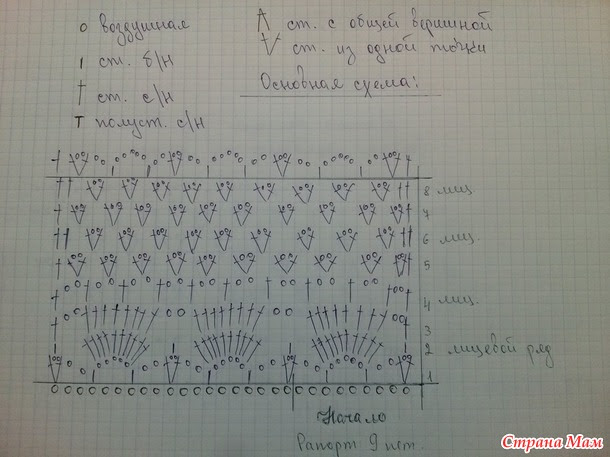 о воздушная
ı ст. б/н
† ст. с/н
т полуст. с/н
ст. с общей вершиной
ст. из одной точки
Основная схема:
8 лиц.
7
6 лиц.
5
4 лиц.
3
2 лицевой ряд
1
Начало
Рапорт 9 пет.
Страна Мам